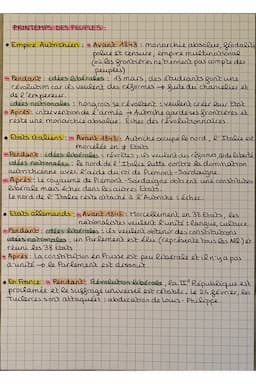 PRINTEMPS DES PEUPLES:
• Empire Autrichien: • Avant 1848: monarchie absolue, féodalité,
police et censure, empire multinational
(où les frontières ne tiennent pas compte des
peuples)
• Pendant: idées libérales: 13 mars, des étudiants font une
révolution car ils veulent des réformes → fuite du chancelier et
de l'empereur.
idées nationales: hongrois se révoltent: veulent créer leur Etat
• Après: intervention de l'armée → Autriche garde ses frontières et
reste une monarchie absolue. Echec des révolutionnaires.
• Etats italiens: • Avant 1848: Autriche occupe le nord, l'Italie est
morcelée en Etats
• Pendant: idées libérales: révoltes: ils veulent du régime, de liberté
idées nationales: nord de l'Italie lutte contre la domination
autrichienne avec l'aide du roi de Piémont-Sardaigne.
• Après: Le royaume de Piémont-Sardaigne obtient une constitution
libérale mais échec dans les autres Etats.
Le nord de l'Italie reste attaché à l'Autriche: échec.
• Etats allemands: • Avant 1848: Morcellement en 38 Etats, les
nationalistes veulent l'unité (langue, culture
• Pendant: idées libérales: ils veulent obtenir des constitutions
idées nationales: un Parlement est élu (représente tous les All) et
réunit les 38 Etats
• Après: La constitution en Prusse est peu libérale et il n'y a pas
d'unité → le Parlement est dissout
• En France: • Pendant: Révolution libérale, la IIe République est
proclamée et le suffrage universel est rétabli. Le 24 février, les
Tuileries sont attaquées: abdication de Louis-Philippe.